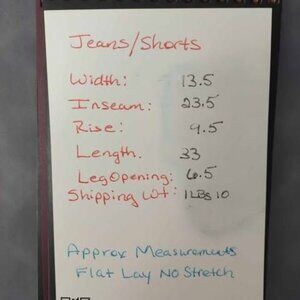 Jeans/Shorts
Width: 13.5
Inseam: 23.5
Rise: 9.5
Length. 33
Leg Opening: 6.5
Shipping Wt: 1 LBS 10
Approx Measurements
Flat Lay No Stretch